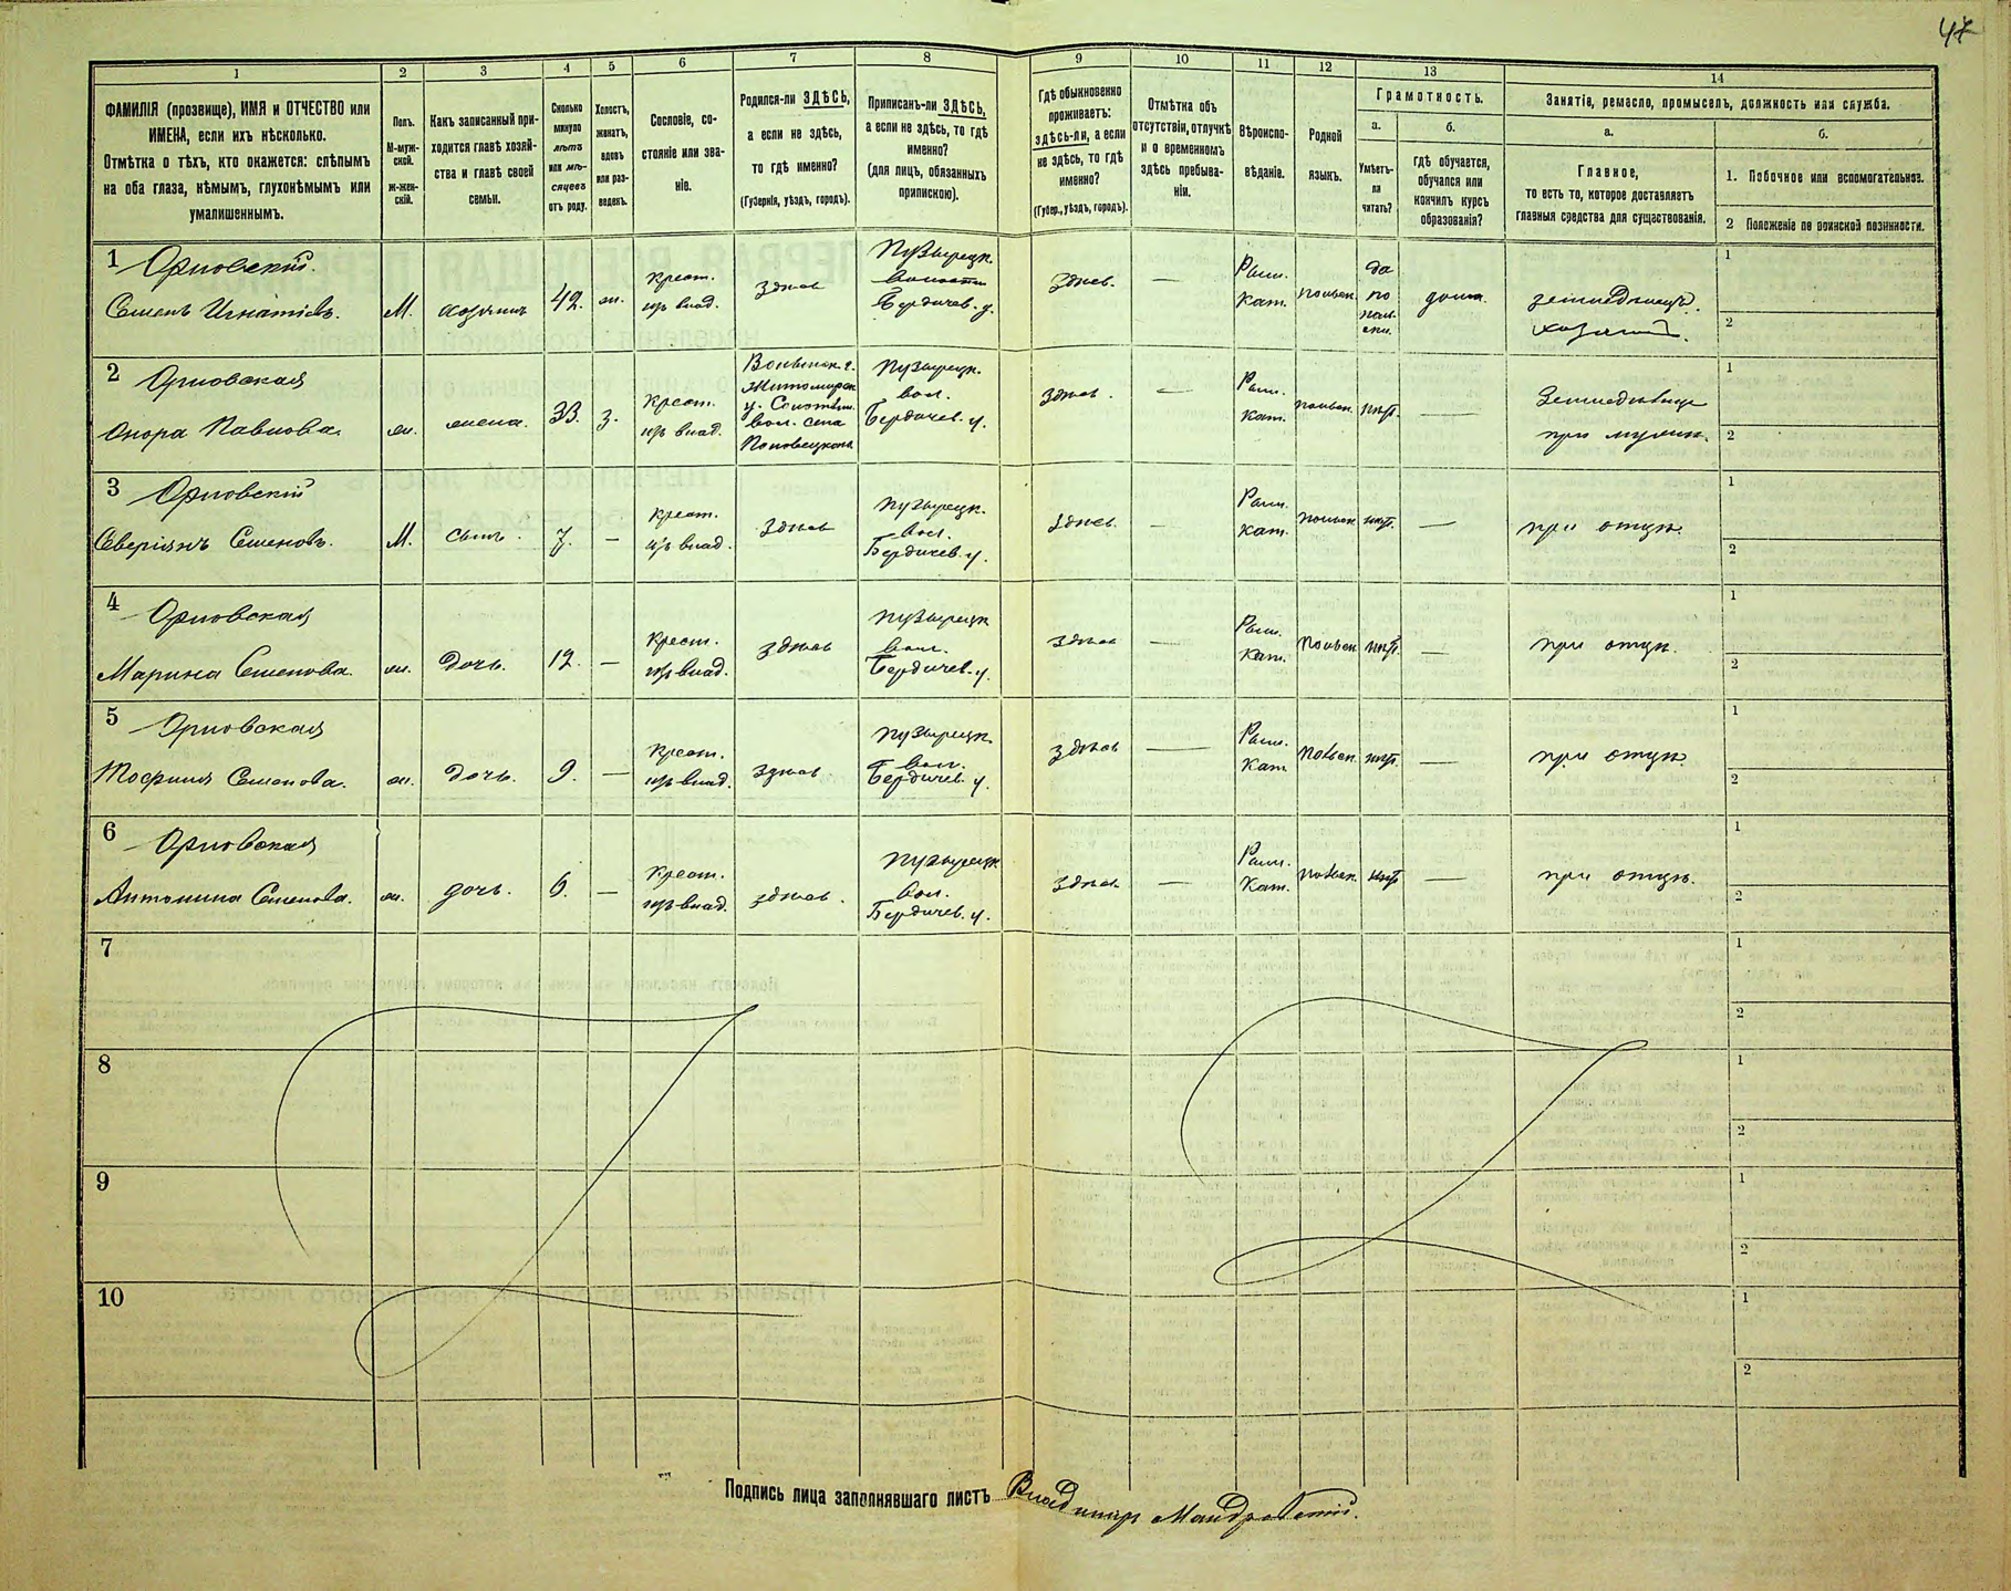 47
1 2 3 4 5 6 7 8 9 10 11 12 13 14
ФАМИЛІЯ (прозвище), ИМЯ и ОТЧЕСТВО или
ИМЕНА, если ихъ нѣсколько.
Отмѣтка о тѣхъ, кто окажется: слѣпымъ
на оба глаза, нѣмымъ, глухонѣмымъ или
умалишеннымъ.
Полъ.
М-муж-
ской.
Ж-жен-
скій.
Какъ записанный при-
ходится главѣ хозяй-
ства и главѣ своей
семьи.
Сколько
минуло
лѣтъ
или мѣ-
сяцевъ
отъ роду.
Холостъ,
женатъ,
вдовъ
или раз-
веденъ.
Сословіе, со-
стояніе или зва-
ніе.
Родился-ли ЗДѢСЬ,
а если не здѣсь,
то гдѣ именно?
(Губернія, уѣздъ, городъ).
Приписанъ-ли ЗДѢСЬ,
а если не здѣсь, то гдѣ
именно?
(для лицъ, обязанныхъ
припискою).
Гдѣ обыкновенно
проживаетъ:
здѣсь-ли, а если
не здѣсь, то гдѣ
именно?
(Губер., уѣздъ, городъ).
Отмѣтка объ
отсутствіи, отлучкѣ
и о временномъ
здѣсь пребыва-
ніи.
Вѣроиспо-
вѣданіе.
Родной
языкъ.
Грамотность.
а.
Умѣетъ-
ли
читать?
б.
гдѣ обучается,
обучался или
кончилъ курсъ
образованія?
Занятіе, ремесло, промыселъ, должность или служба.
а.
Главное,
то есть то, которое доставляетъ
главныя средства для существованія.
б.
1. Побочное или вспомогательное.
2 Положеніе по воинской повинности.
1
Орловскій.
Семенъ Игнатіевъ.
М.
хозяинъ
42.
ж.
Крест.
изъ влад.
здѣсь
Пузырецк.
волости
Бердичев. у.
Здѣсь.
—
Рим.
Кат.
польск.
да
по
поль-
ски.
дома.
земледѣлецъ.
хозяинъ.
1
2
2
Орловская
Онора Павлова.
ж.
жена.
33.
з.
Крест.
изъ влад.
Волынск. г.
Житомирск
у.
вол. села
Пузырецк.
вол.
Бердичев. у.
Здѣсь.
—
Рим.
Кат.
польск.
нѣт.
—
Земледѣлица
при мужѣ.
1
2
3
Орловскій
Северіянъ Семеновъ.
М.
сынъ.
7.
—
Крест.
изъ влад.
Здѣсь
Пузырецк.
вол.
Бердичев. у.
Здѣсь.
—
Рим.
Кат.
польск.
нѣт.
—
при отцѣ.
1
2
4
Орловская
Марина Семенова.
ж.
дочь.
12.
—
Крест.
изъ влад.
здѣсь
Пузырецк
вол.
Бердичев. у.
здѣсь
—
Рим.
Кат.
польск.
нѣт.
—
при отцѣ.
1
2
5
Орловская
Тофиля Семенова.
ж.
дочь.
9.
—
Крест.
изъ влад.
здѣсь.
Пузырецк.
вол.
Бердичев. у.
здѣсь
—
Рим.
Кат
польск.
нѣт.
—
при отцѣ.
1
2
6
Орловская
Антонина Семенова.
ж.
дочь.
6.
—
Крест.
изъ влад.
здѣсь.
Пузырецк
вол.
Бердичев. у.
здѣсь
—
Рим.
Кат.
польск.
нѣт
—
при отцѣ.
1
2
7
1
2
8
1
2
9
1
2
10
1
2
Подпись лица заполнявшаго листъ Владиміръ